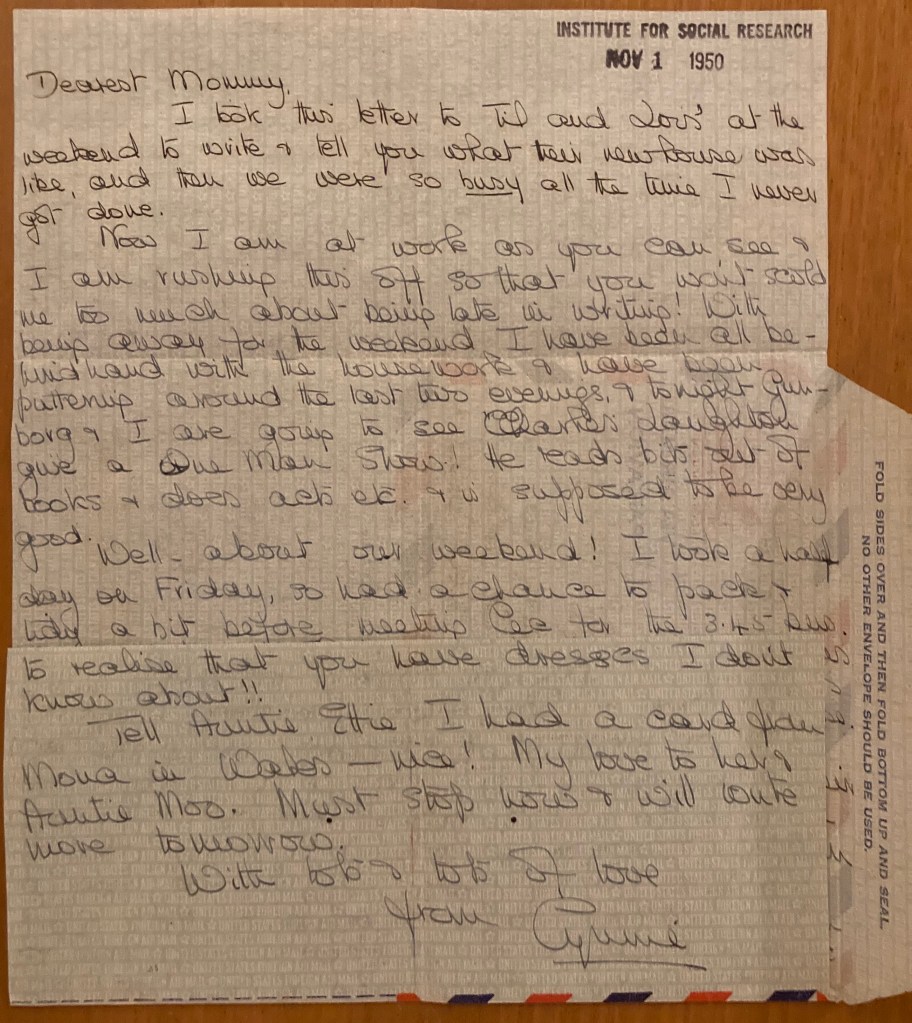 INSTITUTE FOR SOCIAL RESEARCH
NOV 1 1950
Dearest Mommy,
I took this letter to Til and Lois' at the
weekend to write & tell you what their new house was
like, and then we were so busy all the time I never
got done.
Now I am at work as you can see &
I am rushing this off so that you won't scold
me too much about being late in writing! With
being away for the weekend I have been all be-
hind hand with the housework & have been
puttering around the last two evenings, & tonight Gun-
borg & I are going to see Charles Laughton
give a One Man Show! He reads bits out of
books & does acts etc. & is supposed to be very
good.
Well - about our weekend! I took a half
day on Friday, so had a chance to pack &
tidy a bit before meeting Cec for the 3.45 bus.
to realise that you have dresses I don't
know about!!
Tell Auntie Ettie I had a card from
Mona in Wales — nice! My love to her &
Auntie Moo. Must stop now & will write
more tomorrow.
With lots & lots of love
from
FOLD SIDES OVER AND THEN FOLD BOTTOM UP AND SEAL
NO OTHER ENVELOPE SHOULD BE USED.